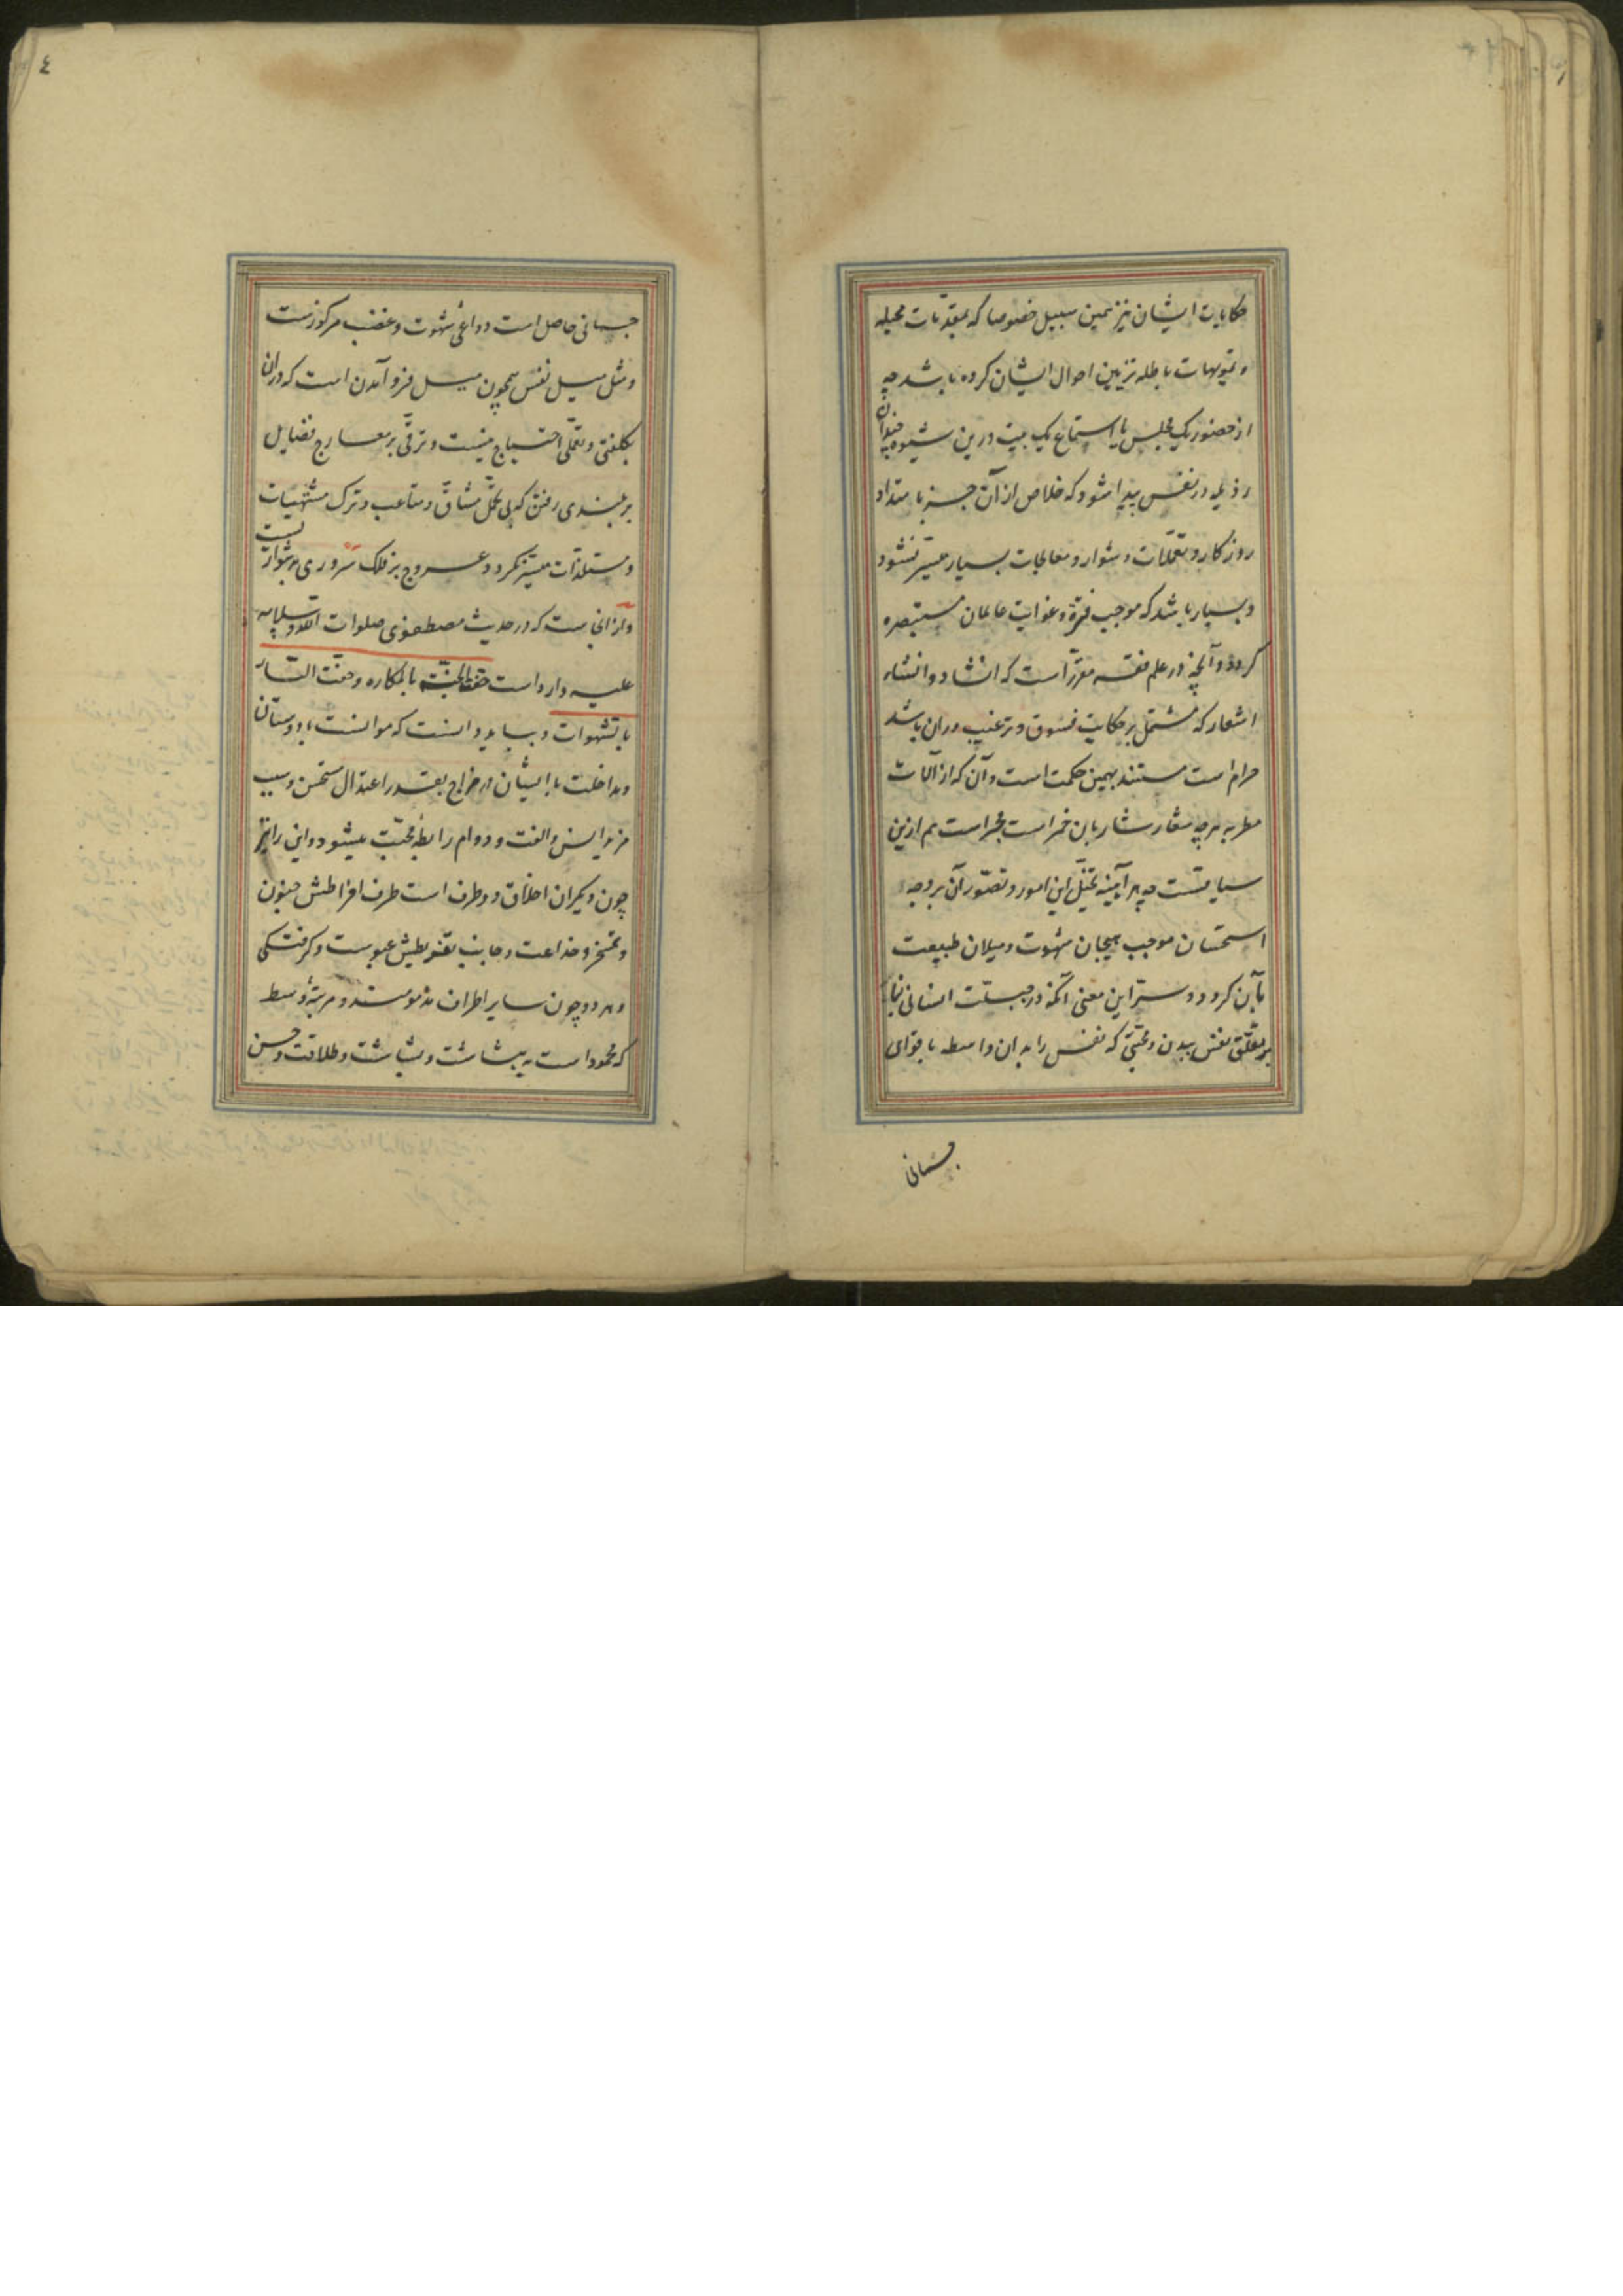 حکایات ایشان نیز همین سبیل خصوصا که بمقدمات مخیله
و تمویهات باطله تزیین احوال ایشان کرده باشد چه
از حضور یک مجلس یا استماع یک بیت درین شیوه چندان
رذیله در نفس پیدا شود که خلاص از آن جز بامتداد
روزکار و تعملات دشوار و معالجات بسیار میسر نشود
و بسیار باشد که موجب فترة و غوایت عالمان مستبصره
کردد و آنچه در علم فقه مقرر است که انشاد و انشاء
اشعار که مشتمل بر حکایت فسوق و ترغیب در ان باشد
حرام است مستند بهمین حکمت است و آن که از آلات
مطربه هرچه شعار شاربان خمر است محرم است هم ازین
سیاقتست چه هر آینه تخیل این امور و تصور آن بر وجه
استحسان موجب هیجان شهوت و میلان طبیعت
بآن کردد و سر این معنی آنکه در جبلت انسانی بنا
بر تعلق نفس ببدن و محبتی که نفس را به ان واسطه با قوای
جسمانی
٤
جسمانی حاصل است دواعی شهوت و غضب مرکوزست
و مثل میل نفس همچون میل فرو آمدن است که در ان
بکلفتی و تعملی احتیاج نیست و ترقی بر معارج فضایل
بر بلندی رفتن که بی تحمل مشاق و متاعب و ترک مشتهیات
و مستلذات میسر نکردد و عروج بر فلک سروری دشوارست
و ازانجاست که در حدیث مصطفوی صلوات الله و سلامه
علیه وارد است حفت الجنة بالمکاره و حفت النار
بالشهوات و بباید دانست که موانست با دوستان
و مداخلت با ایشان در مزاج بقدر اعتدال مستحسن و سبب
مزید انس و الفت و دوام رابطه محبت میشود و این را نیز
چون دیکران اخلاق دو طرف است طرف افراطش مجون
و تمسخر و خداعت و جانب تفریطش عبوست و کرفتکی
و هر دو چون سایر اطراف مذمومند و مرتبهٔ وسط
که محمود است به بشاشت و طلاقت و حسن